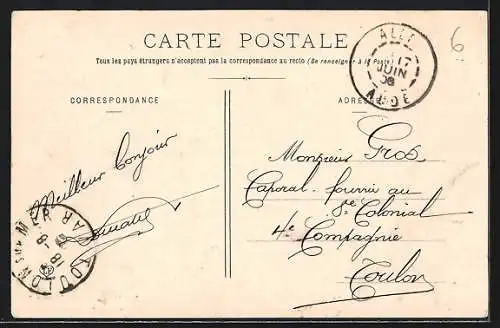 CARTE POSTALE
Tous les pays étrangers n'acceptent pas la correspondance au recto (Se renseigner à la Poste)
CORRESPONDANCE
ADRESSE
ALET
17
JUIN
08
AUDE
6
Meilleur bonjour
Monsieur Gros
Caporal-fourrier au
8e Colonial
4e Compagnie
Toulon
TOULON SUR MER
VAR